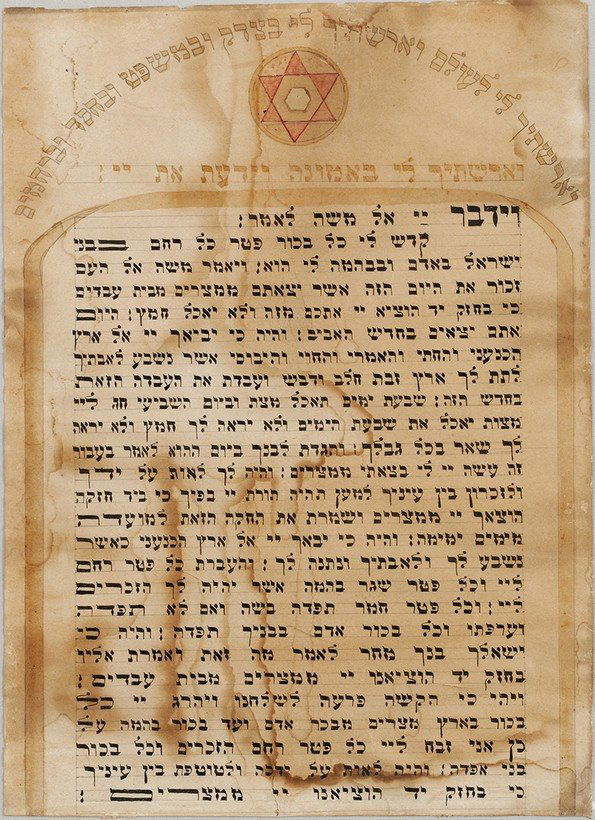 וארשתיך לי לעולם וארשתיך לי בצדק ובמשפט ובחסד וברחמים
וארשתיך לי באמונה וידעת את יי:
וידבר יי אל משה לאמר:
קדש לי כל בכור פטר כל רחם בבני
ישראל באדם ובבהמה לי הוא: ויאמר משה אל העם
זכור את היום הזה אשר יצאתם ממצרים מבית עבדים
כי בחזק יד הוציא יי אתכם מזה ולא יאכל חמץ: היום
אתם יצאים בחדש האביב: והיה כי יביאך יי אל ארץ
הכנעני והחתי והאמרי והחוי והיבוסי אשר נשבע לאבתיך
לתת לך ארץ זבת חלב ודבש ועבדת את העבדה הזאת
בחדש הזה: שבעת ימים תאכל מצת וביום השביעי חג ליי
מצות יאכל את שבעת הימים ולא יראה לך חמץ ולא יראה
לך שאר בכל גבלך: והגדת לבנך ביום ההוא לאמר בעבור
זה עשה יי לי בצאתי ממצרים: והיה לך לאות על ידך
ולזכרון בין עיניך למען תהיה תורת יי בפיך כי ביד חזקה
הוצאך יי ממצרים ושמרת את החקה הזאת למועדה
מימים ימימה: והיה כי יבאך יי אל ארץ הכנעני כאשר
נשבע לך ולאבתיך ונתנה לך: והעברת כל פטר רחם
ליי וכל פטר שגר בהמה אשר יהיה לך הזכרים
ליי: וכל פטר חמר תפדה בשה ואם לא תפדה
וערפתו וכל בכור אדם בבניך תפדה: והיה כי
ישאלך בנך מחר לאמר מה זאת ואמרת אליו
בחזק יד הוציאנו יי ממצרים מבית עבדים:
ויהי כי הקשה פרעה לשלחנו ויהרג יי כל
בכור בארץ מצרים מבכר אדם ועד בכור בהמה על
כן אני זבח ליי כל פטר רחם הזכרים וכל בכור
בני אפדה: והיה לאות על ידכה ולטוטפת בין עיניך
כי בחזק יד הוציאנו יי ממצרים: